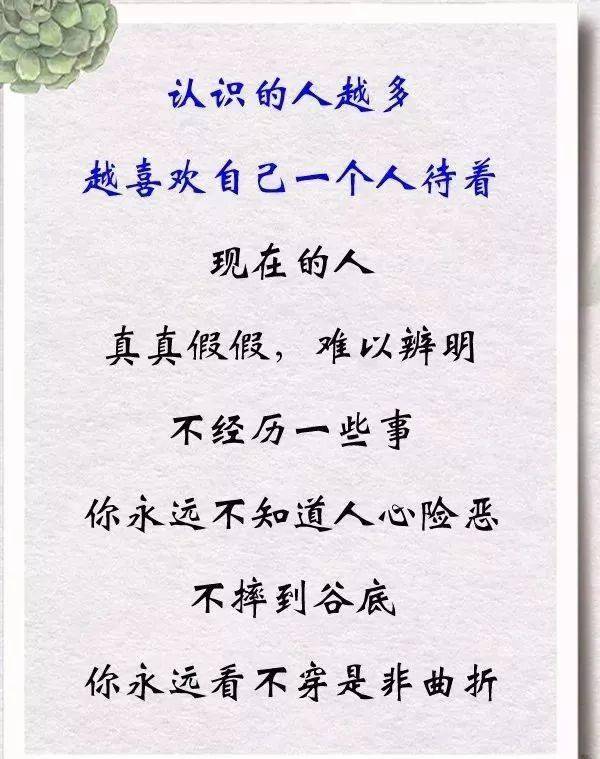 认识的人越多
越喜欢自己一个人待着
现在的人
真真假假，难以辨明
不经历一些事
你永远不知道人心险恶
不摔到谷底
你永远看不穿是非曲折